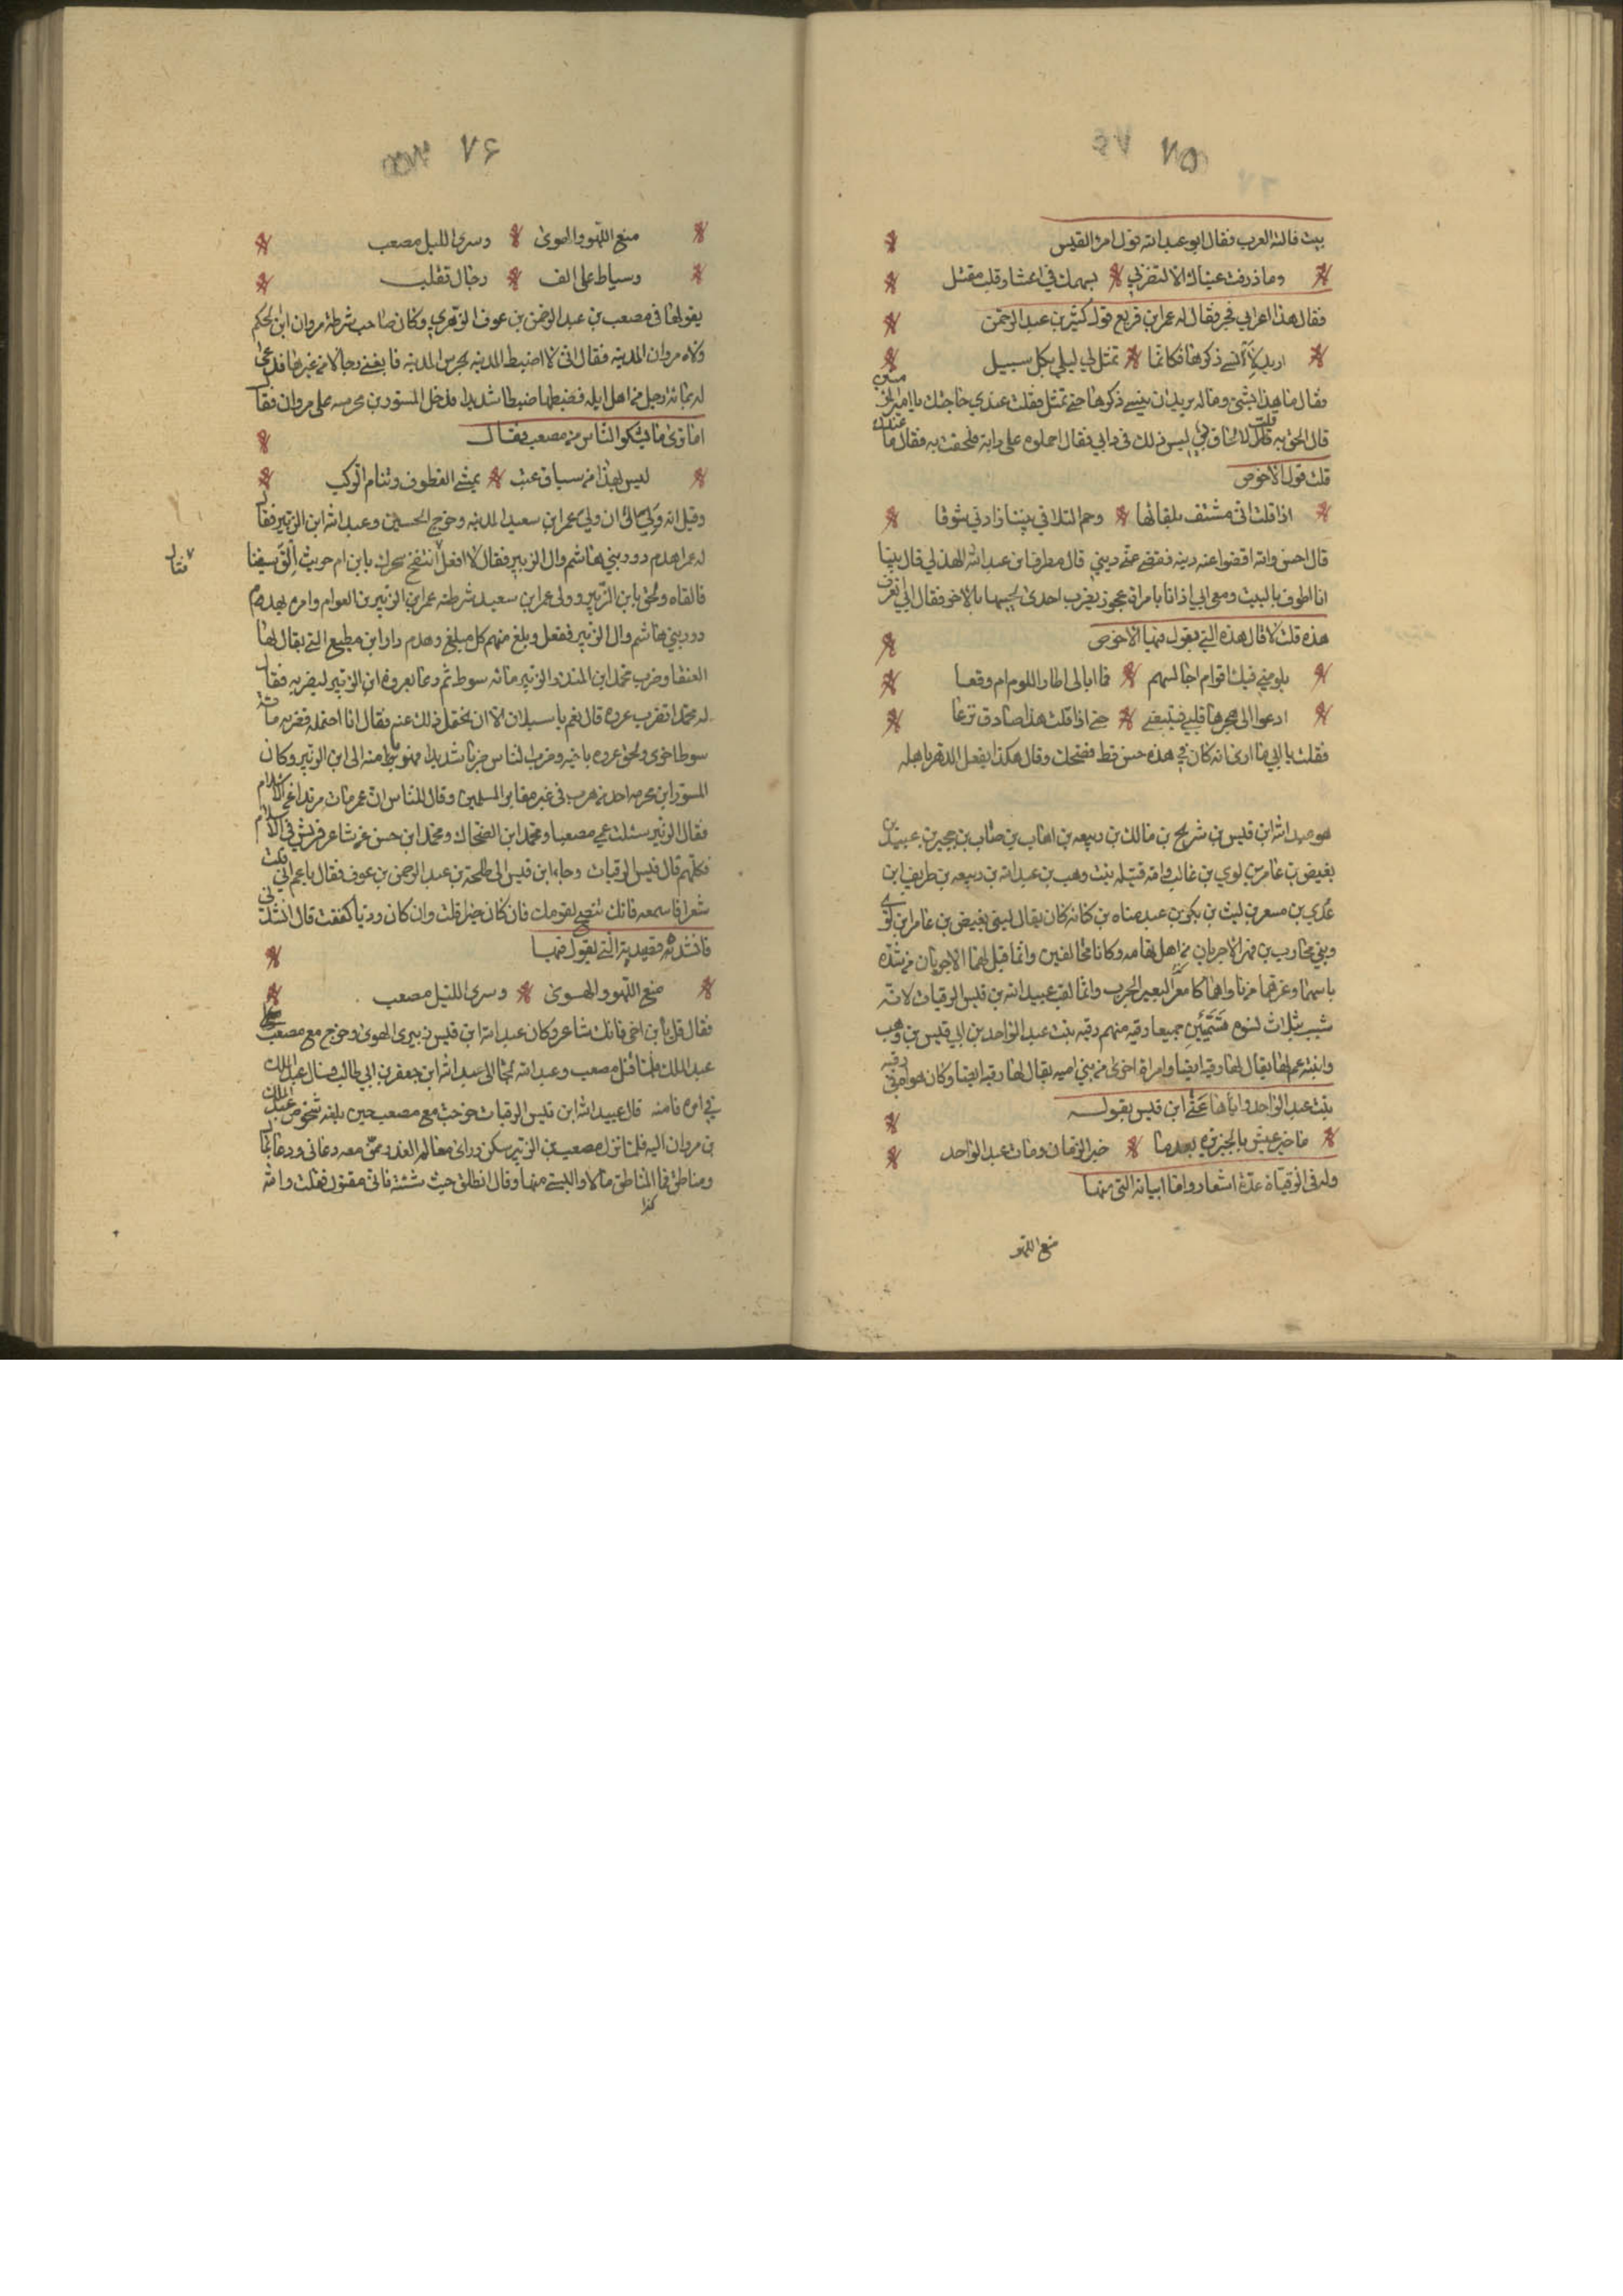 ٧٥
بيت قالته العرب فقال ابو عبد الله قول امرء القيس
وما ذرفت عيناك الا لتضربي بسهميك في اعشار قلب مقتل
فقال هذا اعرابي فج فقال له عمر ابن قريع قول كثير بن عبد الرحمن
اريد لأنسى ذكرها فكانما تمثل لي ليلى بكل سبيل
فقال ما هذا بشئ وماله يريد ان ينسى ذكرها حتى تمثل فقلت عندي حاجتك يا امير المؤمنين
قال الحق به قلت لا لحاق بي ليس ذلك في دابي فقال احملوه على دابة فلحقت به فقال ما عندك
قلت قول الاحوص
اذا قلت اني مشتف بلقائها وحم التلاقي بيننا زادني شوقا
قال احسن والله اقضوا عنه دينه فقضى عني ديني قال مطرف ابن عبد الله الهذلي قال بينا
انا اطوف بالبيت ومعي ابي اذ انا بامراة عجوز يضرب احدى لحييها بالاخر فقال ابي تعرف
هذه قلت لا قال هذه التي يقول فيها الاحوص
يلومني فيك اقوام اجالسهم فما ابالي اطار اللوم ام وقعا
ادعوا الى هجرها قلبي فيتبعني حتى اذا قلت هذا صادق نزعا
فقلت يا ابي ما ارى انه كان في هذه حسن قط فضحك وقال هكذا يفعل الدهر باهله
هو عبيد الله ابن قيس بن شريح بن مالك بن ربيعه بن اهاب بن ضباب بن حجير بن عبد بن
بغيض بن عامر بن لوي بن غالب وامه قتيله بنت وهب بن عبد الله بن ربيعه بن طريف ابن
عدي بن سعد بن ليث بن بكر بن عبد مناه بن كنانه كان يقال لبني بغيض بن عامر ابن لوي
وبني محارب بن فهر الاجربان من اهل تهامه وكانا متحالفين وانما قيل لهما الاجربان من شدة
باسهما وعرهما من ناواهما كما يعر البعير الجرب وانما لقب عبيد الله بن قيس الرقيات لانه
شبب بثلاث نسوه سمين جميعا رقيه منهم رقيه بنت عبد الواحد بن ابي قيس بن وهب
وابنة عم لها يقال لها رقيه ايضا وامراة اخرى من بني اميه يقال لها رقيه ايضا وكان هوا في رقيه
بنت عبد الواحد واياها عنى ابن قيس بقوله
ما خير عيش بالجزيره بعدما خير الزمان ومات عبد الواحد
وله في الرقياة عدة اشعار واما ابياته التي منها
منع اللهو
٧۶
منع اللهو والهوى وسرى الليل مصعب
وسياط على الف رجال تقلب
يقولها في مصعب بن عبد الرحمن بن عوف الزهري وكان صاحب شرطة مروان ابن الحكم
ولاه مروان المدينه فقال اني لا اضبط المدينه بحرس المدينه فابغني رجالا من غيرها فدعى
له بمائة رجل من اهل ايله فضبطها ضبطا شديدا فدخل المسور بن مخرمه على مروان فقال
اما ترى ما يشكوا الناس من مصعب فقال
ليس بهذا من سياق عتب يمشي القطوف وتنام الركب
وقيل انه ان ولي عمر ابن سعيد المدينه وخرج الحسين وعبد الله ابن الزبير فقال
له عمر اهدم دور بني هاشم وال الزبير فقال لا افعل انتفخ سحرك يا بن ام حريث الق سيفنا
فالقاه ولحق بابن الزبير وولى عمر ابن سعيد شرطته عمر ابن الزبير بن العوام وامره بهدم
دور بني هاشم وال الزبير ففعل وبلغ منهم كل مبلغ وهدم دار ابن مطيع التي يقال لها
العنقا وضرب محمد ابن المنذر الزبير مائه سوط ثم دعا بعروه ابن الزبير ليضربه فقال
له محمد اتضرب عروه قال نعم يا سبلان الا ان تحتمل ذلك عنه فقال انا احتمله فضربه مائة
سوط اخرى ولحق عروه باخيه وضرب الناس ضربا شديدا فهربوا منه الى ابن الزبير وكان
المسور ابن مخرمه احد من هرب في غير مقابر المسلمين وقال للناس ان عمر مات مرتدا عن الاسلام
فقال الزبير سئلت عمي مصعبا ومحمد ابن الضحاك ومحمد ابن حسن عن شاعر قريش في الاسلام
فكلهم قال قيس الرقيات وجاء ابن قيس الى طلحة بن عبد الرحمن بن عوف فقال يا عم اني قلت
شعرا فاسمعه فانك تنصح لقومك فان كان خيرا قلت وان كان رديا كففت قال انشدني
فانشدته قصيدته التي يقول فيها
منع اللهو والهوى وسرى الليل مصعب
فقال قل يا بن اخي فانك شاعر وكان عبيد الله ابن قيس زبيري الهوى وخرج مع مصعب على
عبد الملك فلما قتل مصعب وعبد الله لجا الى عبد الله ابن جعفر بن ابي طالب فسال عبد الملك
في امره فامنه قال عبيد الله ابن قيس الرقيات خرجت مع مصعب حين بلغه شخوص عبد الملك
بن مروان اليه فلما نزل مصعب بن الزبير بمسكن وراى معالم الغدر ممن معه دعاني ودعا بمال
ومناطق فملا المناطق مالا والبسني منها وقال انطلق حيث شئت فاني مقتول فقلت والله
كذا
فقال